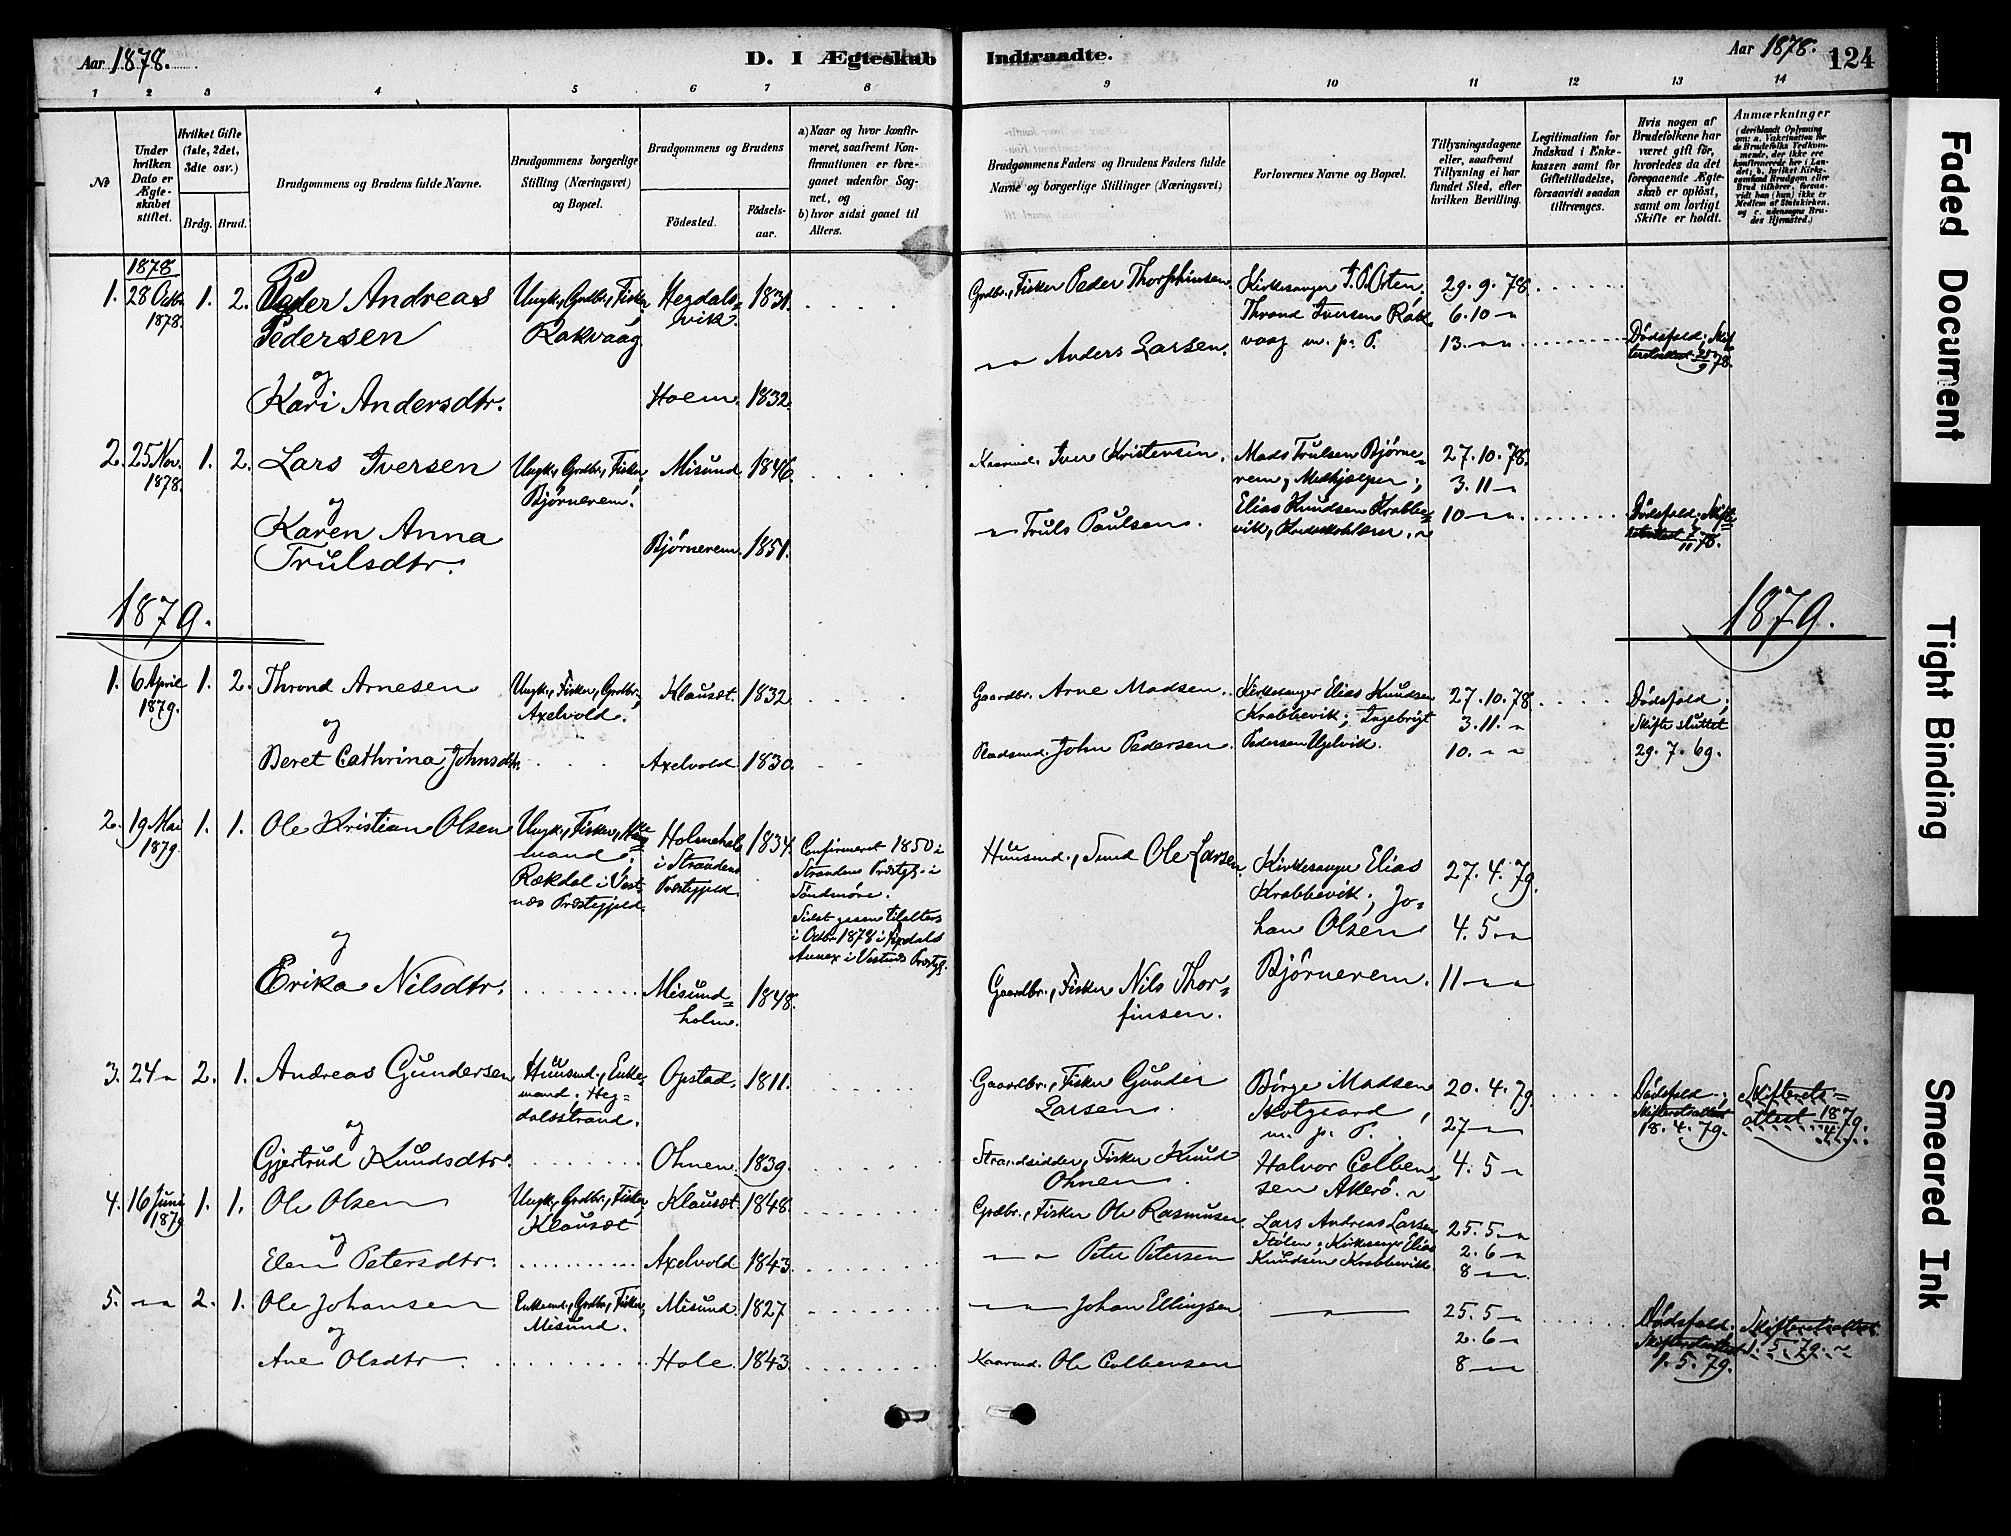 Aar 1878.
D. I Ægteskab Indtraadte.
Aar 1878.
124
1 2 3 4 5 6 7 8 9 10 11 12 13 14
No
Under hvilken Dato er Ægteskabet stiftet.
Hvilket Gifte (1ste, 2det, 3dte osv.)
Brdg. Brud.
Brudgommens og Brudens fulde Navne.
Brudgommens borgerlige Stilling (Næringsvei) og Bopæl.
Brudgommens og Brudens
Födested.
Födsels-aar.
a) Naar og hvor konfirmeret, saafremt Konfirmationen er foreganet udenfor Sognet, og
b) hvor sidst gaaet til Alters.
Brudgommens Faders og Brudens Faders fulde Navne og borgerlige Stillinger (Næringsvei)
Forlovernes Navne og Bopæl.
Tillysningsdagene eller, saafremt Tillysning ei har fundet Sted, efter hvilken Bevilling.
Legitimation for Indskud i Enkekassen samt for Giftetilladelse, forsaavidt saadan tiltrænges.
Hvis nogen af Brudefolkene har været gift för, hvorledes da det foregaaende Ægteskab er oplöst, samt om lovligt Skifte er holdt.
Anmærkninger
1878
1. 28 Octbr 1878. 1. 2. Peder Andreas Pedersen
Ungk., Grdbr., Fisker, Rakvaag
Hegdalsvik. 1831.
Grdbr., Fisker Peder Thorphinsen
Kirkesanger
Thrond Iversen Rakvaag m. p. P.
29. 9. 78.
6. 10 -"-
13. -"-"
og
Kari Andersdtr.
Hoem. 1832.
-"- Anders Larsen.
Dødsfald; Skifteretsattest 78.
2. 25 Nov. 1878. 1. 2. Lars Iversen
Ungk., Grdbr., Fisker, Bjørnerem.
Misund 1846.
Iver Kristensen.
Mads Trulsen Bjørnerem, Medhjælper;
Elias Knudsen Krabbevik,
27. 10. 78.
3. 11 -"-
10 -"-"
og
Karen Anna Trulsdtr.
Bjørnerem. 1851.
-"- Truls Paulsen.
Dødsfald; Skifteattest 78.
1879.
1879.
1. 6 April 1879. 1. 2. Thrond Arnesen
Ungk., Fisker, Grdbr., Axelvold.
Klauset. 1832
Gaardbr. Arne Madsen.
Kirkesanger Elias Knudsen Krabbevik; Ingebrigt Pedersen Ugelvik.
27. 10. 78
3. 11. "
10. " "
Dødsfald; Skifte sluttet 29. 7. 69.
og
Beret Cathrina Johnsdtr.
Axelvold 1830.
Pladsmd. John Pedersen.
2. 19 Mai 1879 1. 1. Ole Kristian Olsen
Ungk., Fisker,
Rækdal i Vestnæs Præstegjeld.
i Strandens Præstegjeld.
1834.
Confirmeret 1850 i Strandens Præstgj. i Söndmöre.
Sidst gaaen til alters i Octbr 1878 i Annex i Vestnæs Præstgj.
Huusmd., Smed Ole Larsen.
Kirkesanger Elias Krabbevik; Johan Olsen Bjørnerem.
27. 4. 79.
4. 5 -"-
11 -"-"
og
Erika Nilsdtr.
Misundholm. 1848.
Gaardbr., Fisker Nils Thorfinsen.
3. 24 " 2. 1. Andreas Gundersen
Huusmd., Enkemand, Hegdalsstrand.
Opstad. 1811.
Gaardbr., Fisker Gunder Larsen.
Børge Madsen
m. p. P.
20. 4. 79.
27 -"-
4. 5 -"-
Dødsfald; Skifteretsattest 18. 4. 79.
Skifterets=attest 18/4 79.
og
Gjertrud Knudsdtr.
Ohnen. 1839.
Strandsidder, Fisker Knud Ohnen.
Halvor Colbensen Akerö. "
4. 16 Juni 1879 1. 1. Ole Olsen
Ungk., Grdbr., Fisker, Klauset
Klauset. 1848.
Grdbr., Fisker Ole Rasmusen
Lars Andreas Larsen Stølen; Kirkesanger Elias Knudsen Krabbevik.
25. 5 -"-
2. 6 -"-
8 -"-
og
Elen Petersdtr.
Axelvold 1843.
-"-" Peter Petersen
5. -"-" 2. 1. Ole Johansen
Enkemd., Grdbr., Fisker, Misund.
Misund. 1827
-"-" Johan Ellingsen
-"-
25. 5 -"-
2. 6 -"-
8 -"-
Dødsfald. Skifteretsattest 1. 5. 79.
Skifteretsattest 1. 5. 79.
og
Ane Olsdtr.
Hole. 1843.
Ole Colbensen
Faded Document
Tight Binding
Smeared Ink